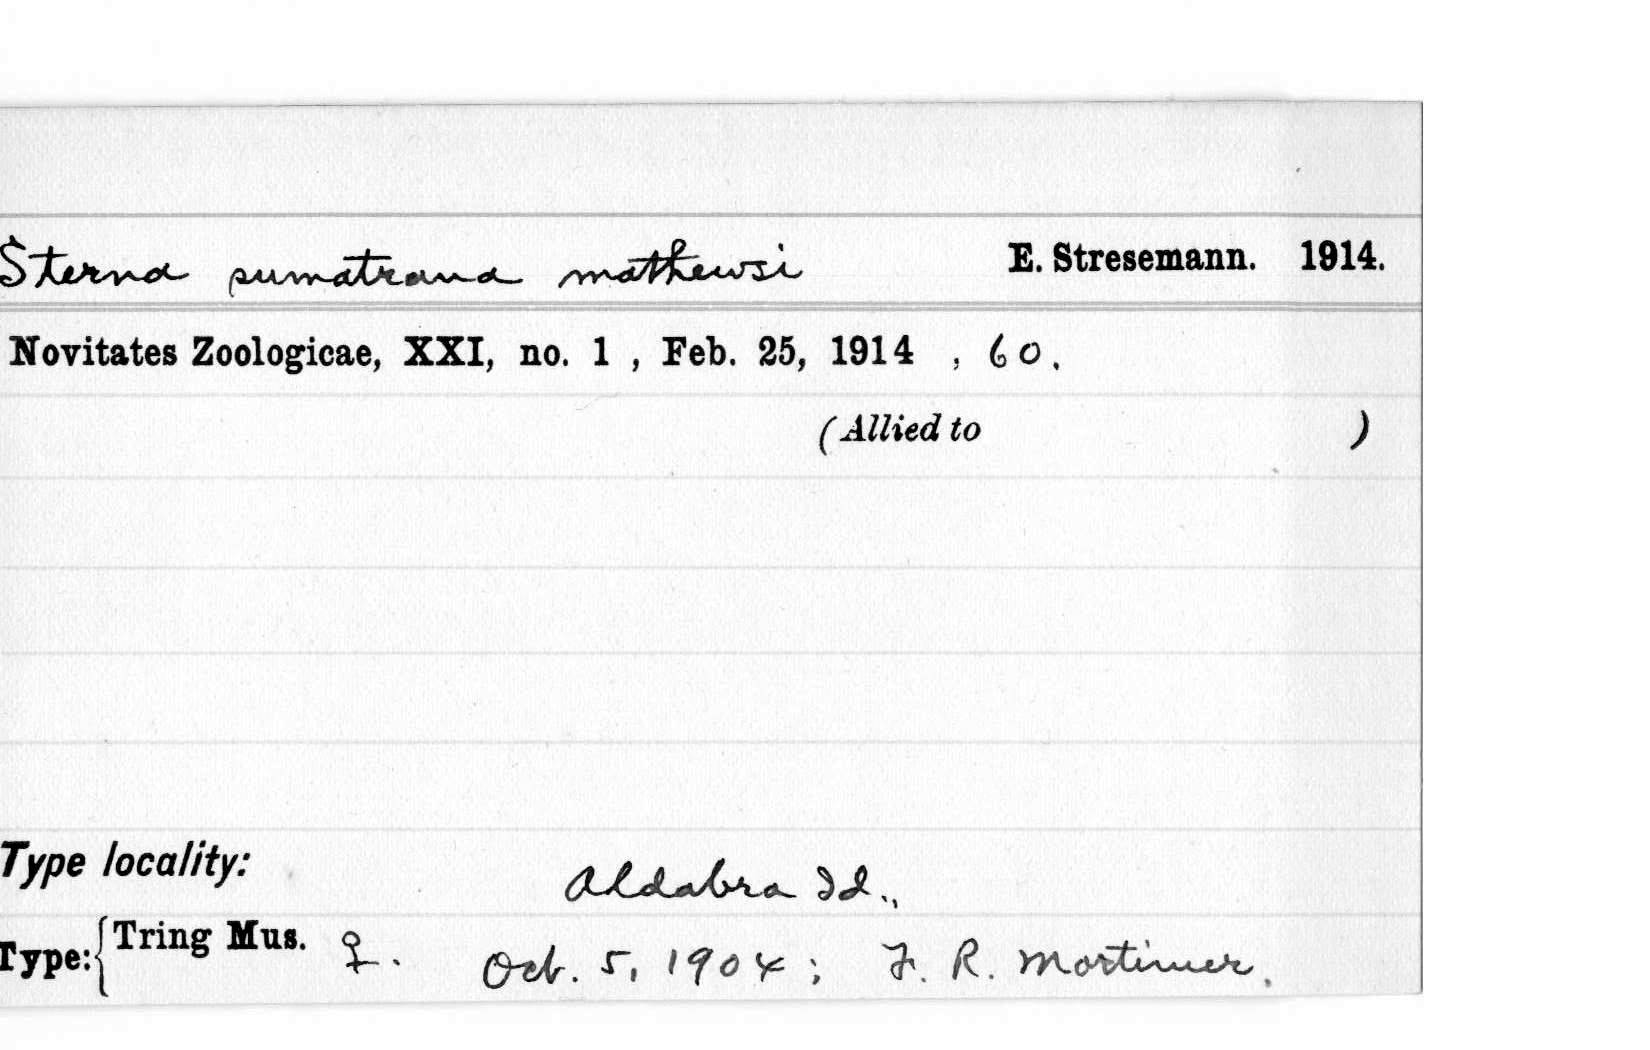 Sterna sumatrana mathewsi E. Stresemann. 1914.
Novitates Zoologicae, XXI, no. 1 , Feb. 25, 1914 , 60.
(Allied to )
Type locality:
Aldabra Id.,
Type: { Tring Mus. ♀. Oct. 5, 1904; F. R. Mortimer.